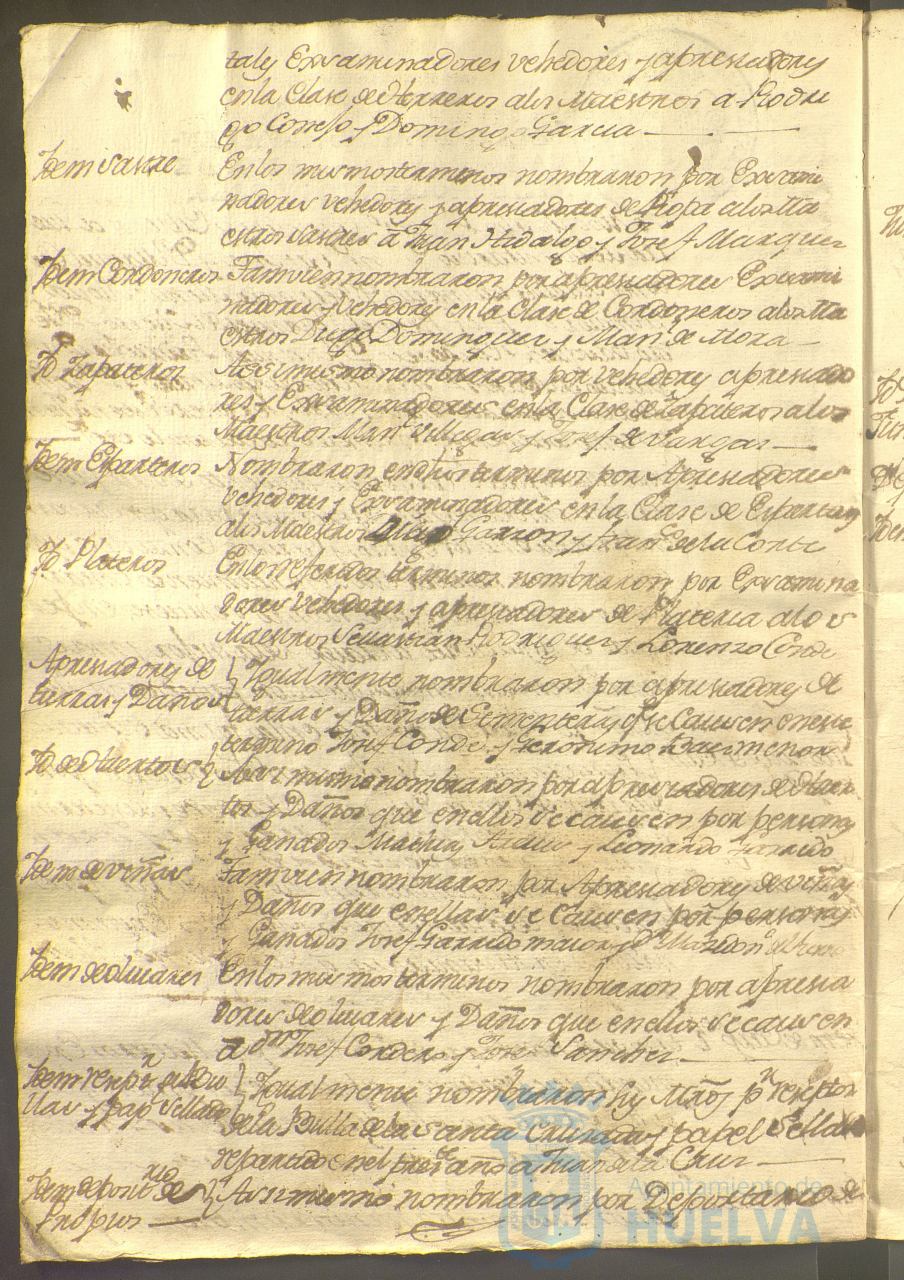 tales Exsaminadores vehedores y apresiadorȩs
en la Clase de Herreros alos Maestros a Rodri
go Correso y Domingo Garcia
Idem Sastre
En los mismos terminos nombraron por Exsami
nadores vehedorȩs y apresiadores de Ropa alos Ma
estros sastres a Juan Hidalgo y Josef Marquez
Idem Cordoneros
Tamvien nombraron por apresiadores Exsami
nadores y vehedorȩs en la Clase de Cordoneros alos Ma
estros Diego Dominguez y Man.l de Mora
Yd Zapateros
Assimismo nombraron por vehedorȩs apresiado
res y Exsaminadores en la Clase de Zapateros alos
Maestros Man.l Villegas y Josef de Vargas
Idem Esparteros
Nombraron en dhos terminos por Apresiadores
vehedores y Exsaminadores en la Clase de Esparteros
alos Maestros Garzon y Fran.co de la Corte
Yd Plateros
En los referidos terminos nombraron por Exsamina
dores vehedores y apresiadores de Plateria alos
Maestros Sevastian Rodriguez y Lorenzo Conde
Apresiadores de
tierras y Daños
Igualmente nombraron por apresiadorȩs de
tierras y Daños de Sementeras q.e se Causen en este
termino Josef Conde y Geronimo menor
Yd de Huertos
Assi mismo nombraron por apresiadores de Huer
tos y Daños que en ellos se causen por personas
y Ganados Mathias y Leonardo Garrido
Idem de viñas
Tamvien nombraron por Apresiadorȩs de viñas
y Daños que en ellas se Causen por personas
y Ganados Josef Garrido maior y d.n
Idem de oliuares
En los mismos terminos nombraron por apresia
dores de oliuares y Daños que en ellos se causen
a d.n Josef Cordero y Josef Sanchez
Idem resep.r de Bu
llas y pap.l Sellado
Igualmente nombraron sus M.ds p.r reseptor
de la Bulla de la Santa Cruzada y papel Sellado
repartido en el pres.te año a Juan de la Cruz
Idem deposit.rio de
Propios
Assimismo nombraron por Depositario de
Ayuntamiento de
HUELVA